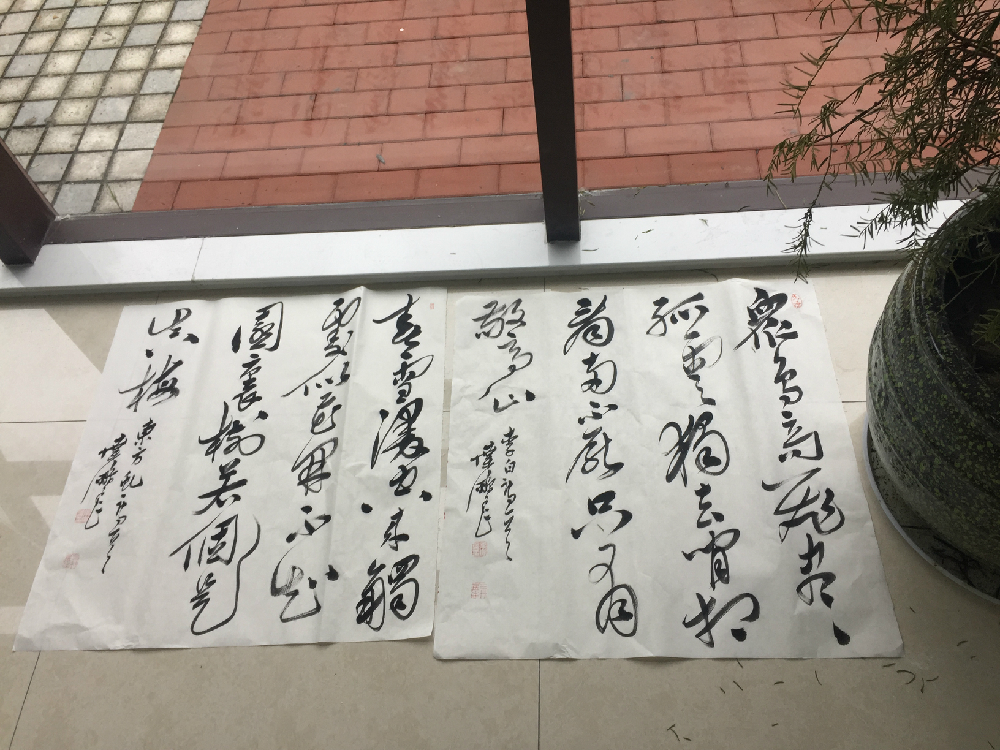 眾鳥高飛盡
孤雲獨去閒相
看兩不厭只有
敬亭山
李白詩一首
春雪滿空來觸
處似花開不知
園裏樹若個是
真梅
東方虬詩一首